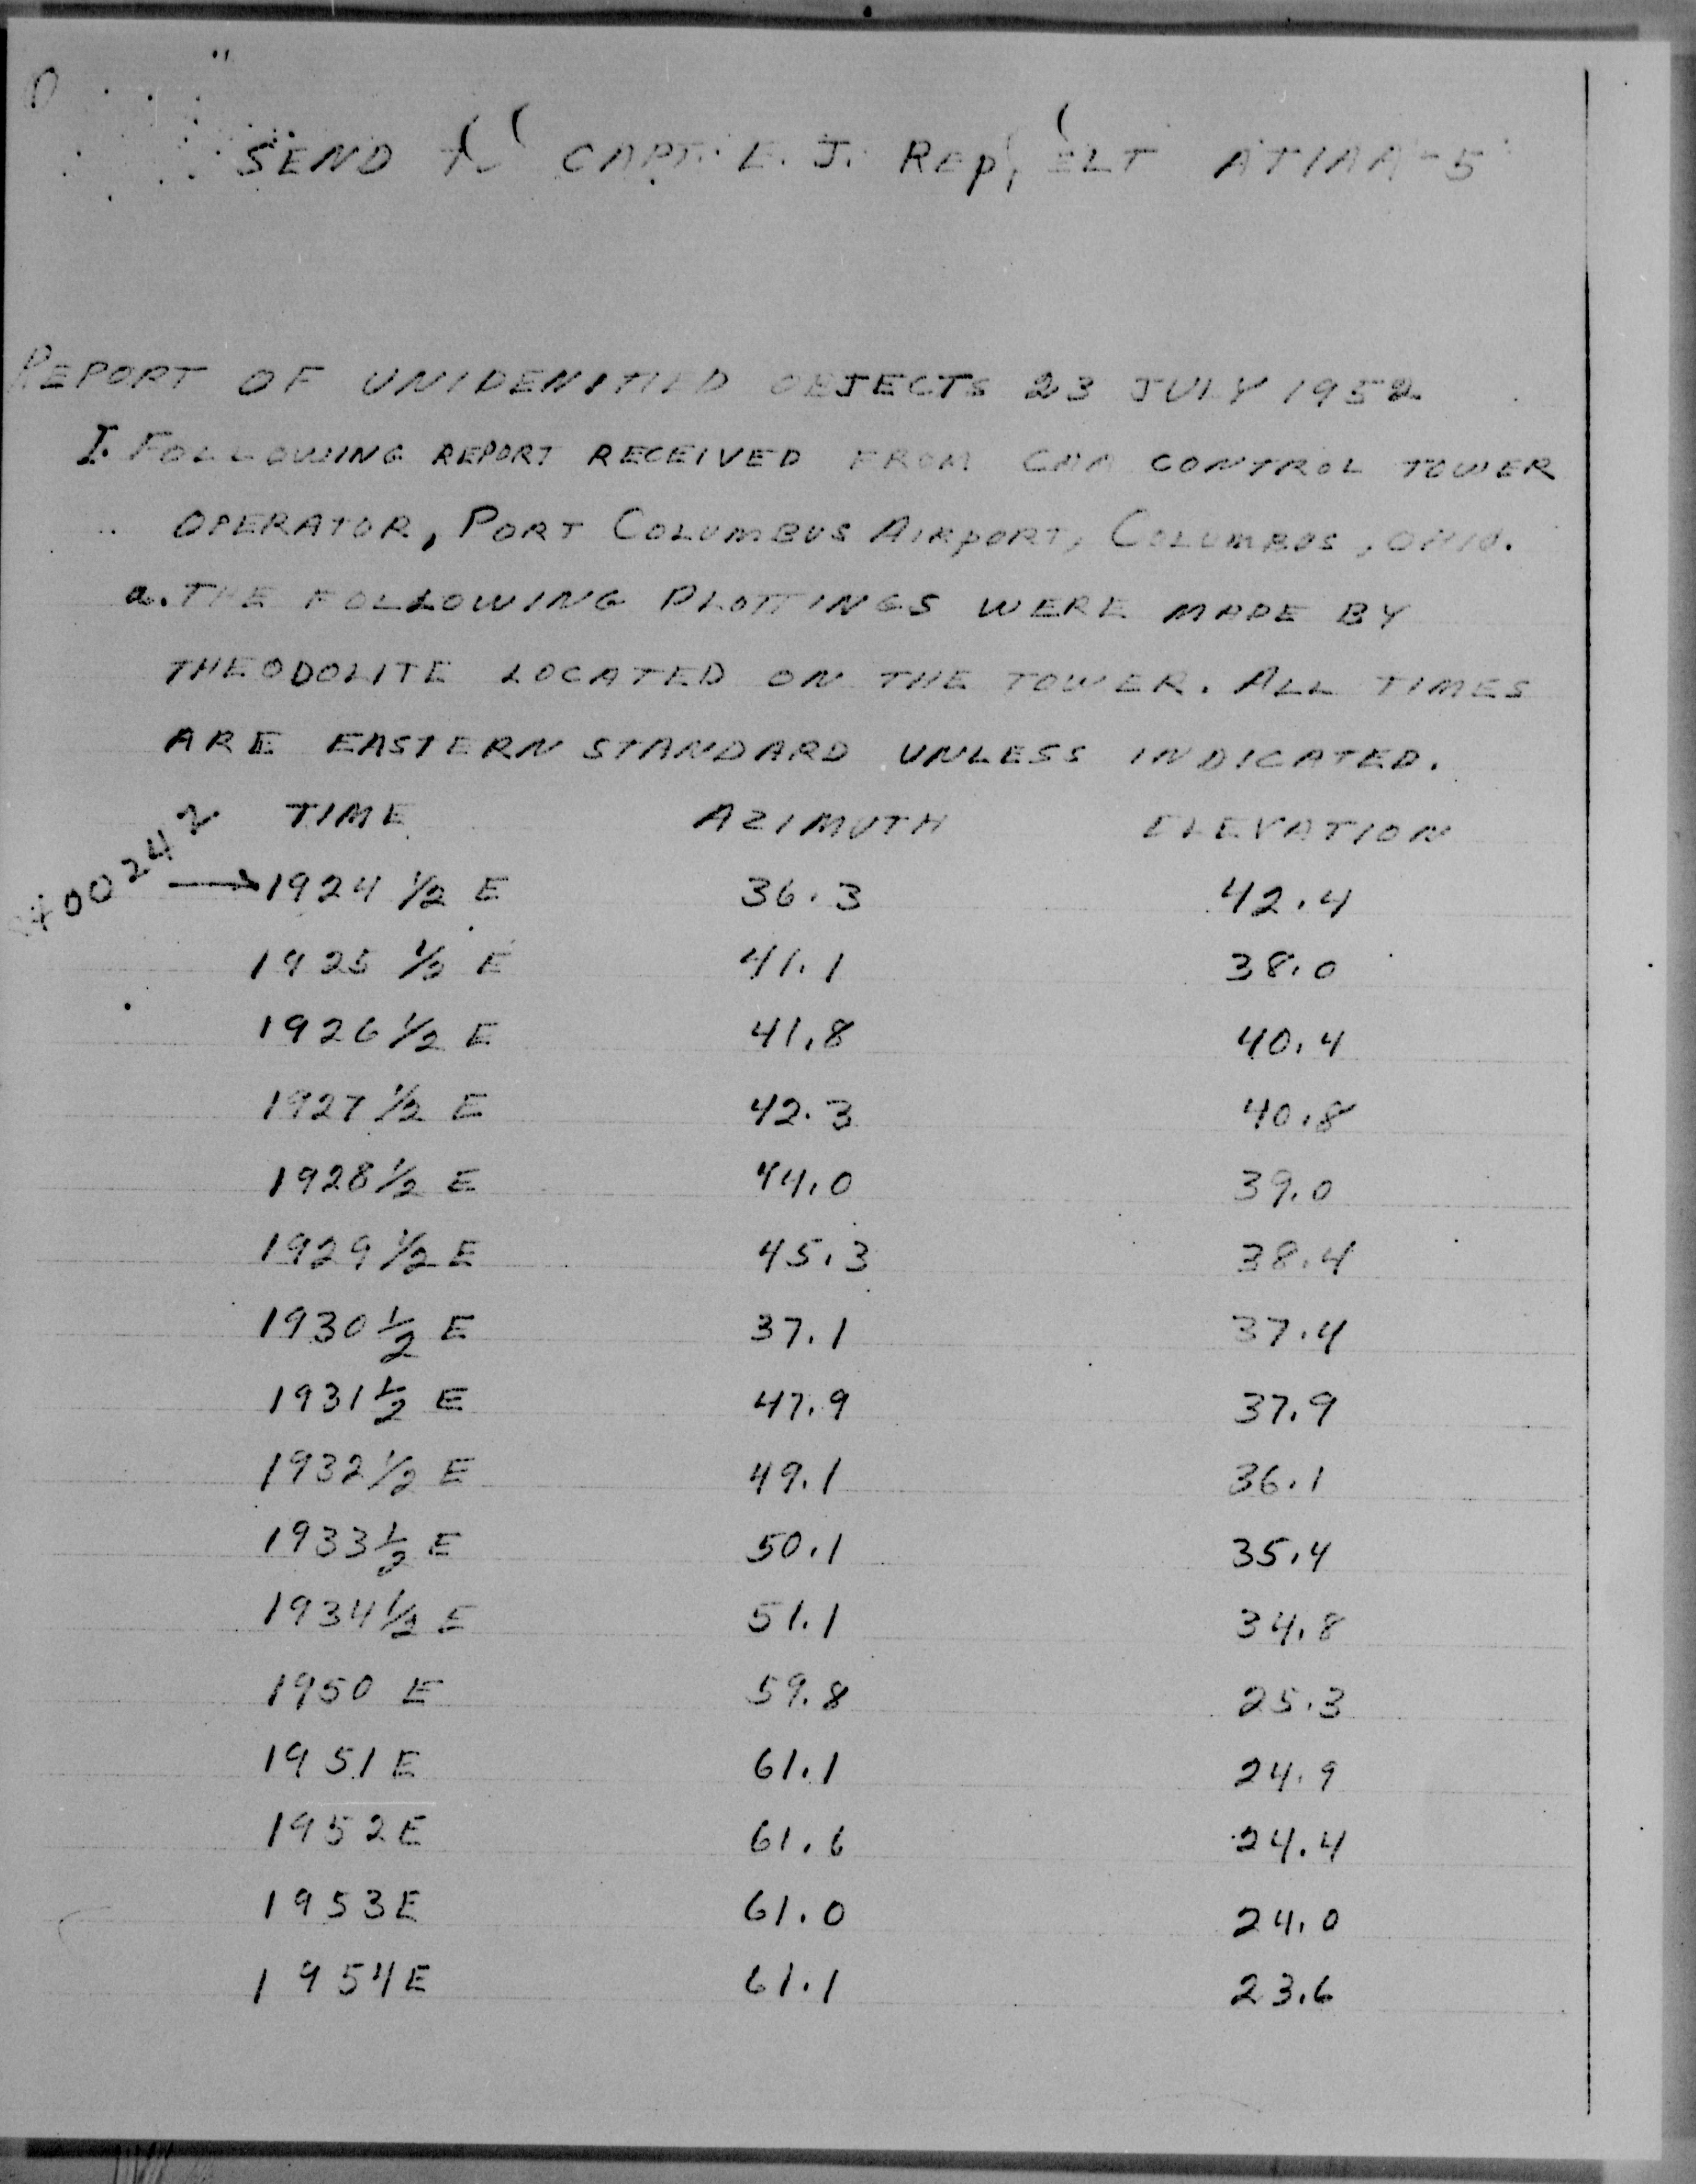 SEND TO CAPT. E. J. Rep, ELT ATIAA-5
REPORT OF UNIDENITIED OBJECTS 23 JULY 1952
I. FOLLOWING REPORT RECEIVED FROM CAA CONTROL TOWER
OPERATOR, PORT COLUMBUS AIRPORT, COLUMBUS, OHIO.
a. THE FOLLOWING PLOTTINGS WERE MADE BY
THEODOLITE LOCATED ON THE TOWER. ALL TIMES
ARE EASTERN STANDARD UNLESS INDICATED.
TIME AZIMUTH ELEVATION
0024Z → 1924 1/2 E 36.3 42.4
1925 1/2 E 41.1 38.0
1926 1/2 E 41.8 40.4
1927 1/2 E 42.3 40.8
1928 1/2 E 44.0 39.0
1929 1/2 E 45.3 38.4
1930 1/2 E 37.1 37.4
1931 1/2 E 47.9 37.9
1932 1/2 E 49.1 36.1
1933 1/2 E 50.1 35.4
1934 1/2 E 51.1 34.8
1950 E 59.8 25.3
1951 E 61.1 24.9
1952 E 61.6 24.4
1953 E 61.0 24.0
1954 E 61.1 23.6